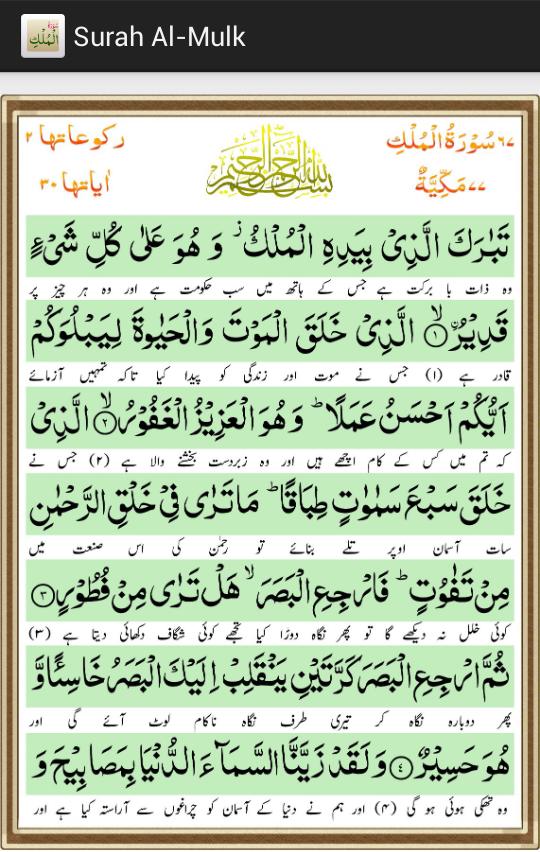 Surah Al-Mulk
٦٧ سُوْرَةُ الْمُلْكِ
٧٧ مَكِّيَّةٌ
بسم الله الرحمن الرحيم
ركوعاتها ٢
اٰياتها ٣٠
تَبٰرَكَ الَّذِىْ بِيَدِهِ الْمُلْكُ ز وَ هُوَ عَلٰى كُلِّ شَىْءٍ
وہ ذات با برکت ہے جس کے ہاتھ میں سب حکومت ہے اور وہ ہر چیز پر
قَدِيْرُ ۙ﴿۱﴾ الَّذِىْ خَلَقَ الْمَوْتَ وَالْحَيٰوةَ لِيَبْلُوَكُمْ
قادر ہے (۱) جس نے موت اور زندگی کو پیدا کیا تاکہ تمہیں آزمائے
اَيُّكُمْ اَحْسَنُ عَمَلًا ؕ وَهُوَ الْعَزِيْزُ الْغَفُوْرُ ۙ﴿۲﴾ الَّذِىْ
کہ تم میں کس کے کام اچھے ہیں اور وہ زبردست بخشنے والا ہے (۲) جس نے
خَلَقَ سَبْعَ سَمٰوٰتٍ طِبَاقًا ؕ مَا تَرٰى فِىْ خَلْقِ الرَّحْمٰنِ
سات آسمان اوپر تلے بنائے تو رحمٰن کی اس صنعت میں
مِنْ تَفٰوُتٍ ؕ فَارْجِعِ الْبَصَرَ ۙ هَلْ تَرٰى مِنْ فُطُوْرٍ ﴿۳﴾
کوئی خلل نہ دیکھے گا تو پھر نگاہ دوڑا کیا تجھے کوئی شگاف دکھائی دیتا ہے (۳)
ثُمَّ ارْجِعِ الْبَصَرَ كَرَّتَيْنِ يَنْقَلِبْ اِلَيْكَ الْبَصَرُ خَاسِئًا وَّ
پھر دوبارہ نگاہ کر تیری طرف نگاہ ناکام لوٹ آئے گی اور
هُوَ حَسِيْرٌ ﴿۴﴾ وَ لَقَدْ زَيَّنَّا السَّمَآءَ الدُّنْيَا بِمَصَابِيْحَ وَ
وہ تھکی ہوئی ہو گی (۴) اور ہم نے دنیا کے آسمان کو چراغوں سے آراستہ کیا ہے اور